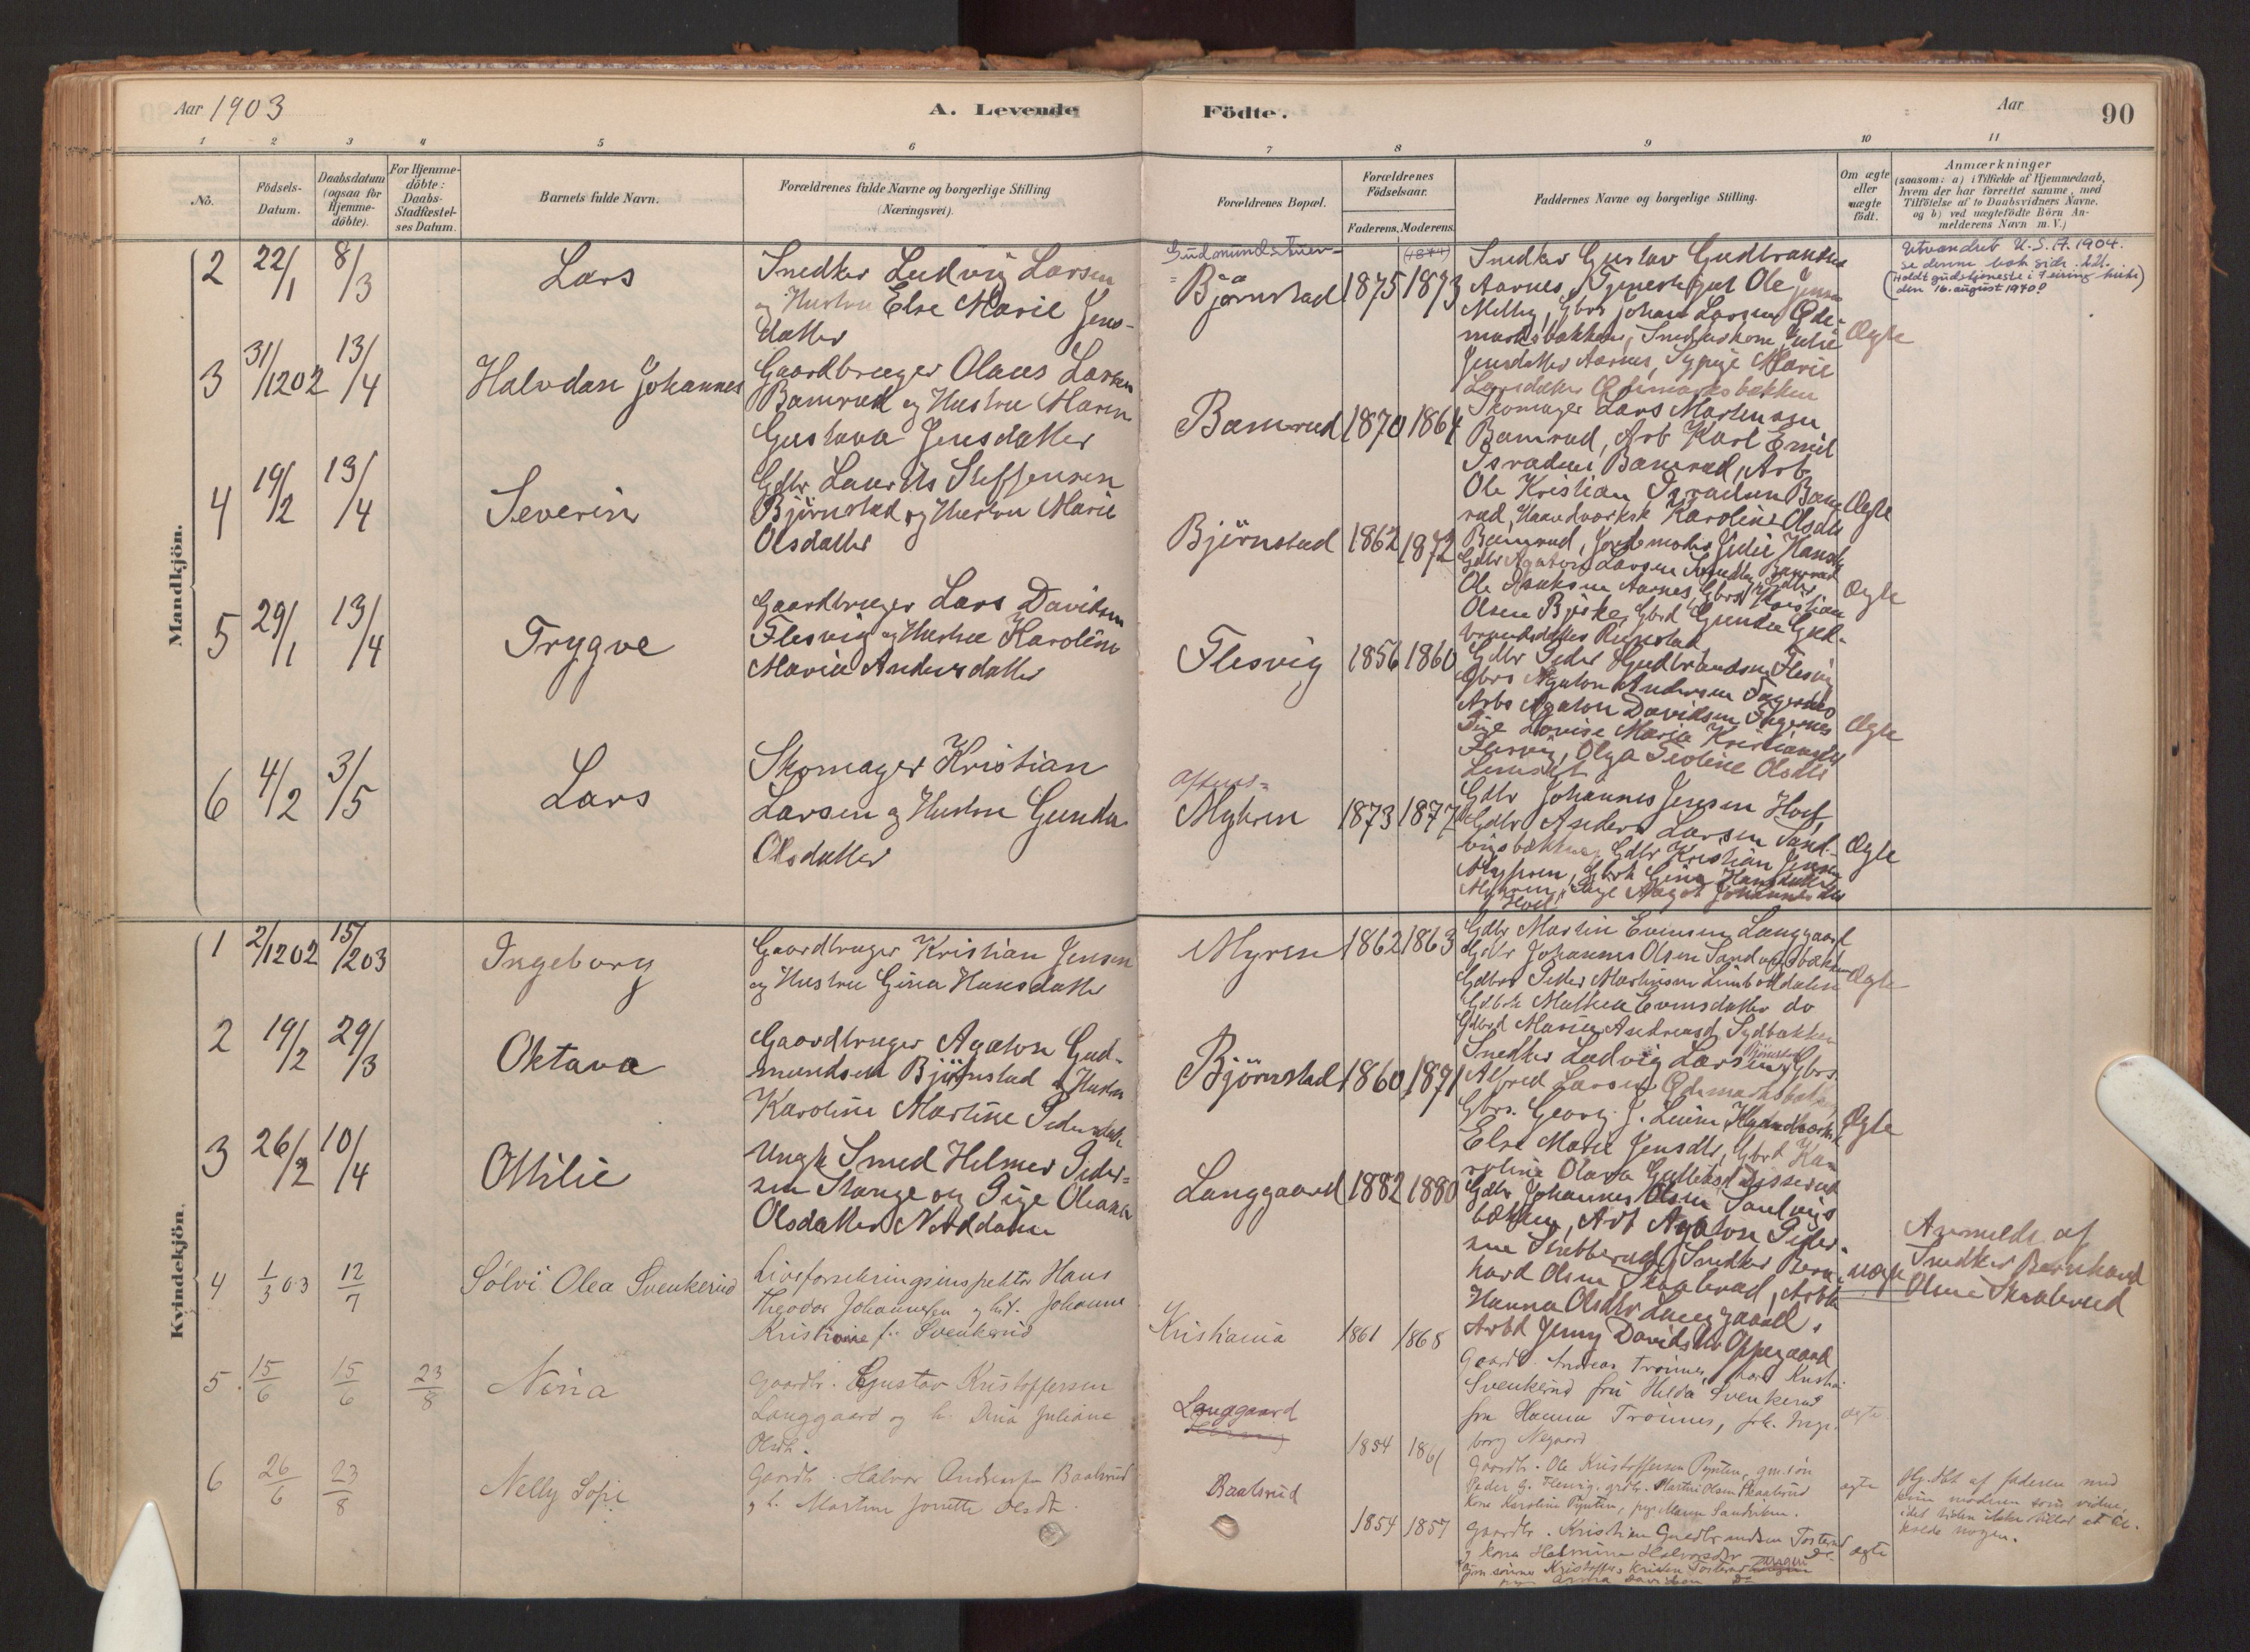 Aar 1903
A. Levende
Födte.
Aar
90
1 2 3 4 5 6 7 8 9 10 11
No.
Födsels-Datum.
Daabsdatum (ogsaa for Hjemme-döbte).
For Hjemme-döbte: Daabs-Stadfæstel-ses Datum.
Barnets fulde Navn.
Forældrenes fulde Navne og borgerlige Stilling
(Næringsvei).
Forældrenes Bopæl.
Forældrenes Födselsaar.
Faderens. Moderens.
Faddernes Navne og borgerlige Stilling.
Om ægte eller uægte födt.
Anmærkninger
(saasom: a) i Tilfælde af Hjemmedaab,
hvem der har forrettet samme, med
Tilföielse af to Daabsvidners Navne.
og b) ved uægtefödte Börn An-
melderens Navn m. V.)
Mandkjön.
2 22/1 8/3
Lars
Snedker Ludvig Larsen
og Hustru Else Marie Jens-
datter
Gudmundstuen-
Bjørnstad 1875 1873
Snedker Gustav Gudbrandsen
Aarnes, Tjenestegut Ole Jensen
Melby, Gbrs Johan Larsen Øde-
marksbakken, Snedkerkone Julie
Jensdatter Aarnes, Sypige Marie
Larsdatter Ødemarksbakken
Ægte
Utvandret U.S.A. 1904.
se denne bok side
(Holdt gudstjeneste i Feiring kirke
den 16. august 1970)
3 31/12 02 13/4
Halvdan Johannes
Gaardbruger Olaus Larsen
Bamrud og Hustru Maren
Gustava Jensdatter
Bamrud 1870 1864
Skomager Lars Martinsen
Bamrud, Arb Karl Emil
Israelsen Bamrud, Arb
Ole Kristian Israelsen Bam-
rud, Haandværksk Karoline Olsdtr
Bamrud, Jordemoder Julie Hansdtr
Ægte
4 19/2 13/4
Severin
Gdbr Laurits Steffensen
Bjørnstad og Hustru Marie
Olsdatter
Bjørnstad 1862 1872
Gdbr Agaton Larsen
Ole Isaksen Aarnes, Gbrs Kristian
Olsen Bjørke, Gbrd Gunda Gud-
brandsdatter
Ægte
5 29/1 13/4
Trygve
Gaardbruger Lars Davidsen
Flesvig og Hustru Karoline
Maria Andersdatter
Flesvig 1856 1860
Gdbr Peder Gudbrandsen Flesvig
Gbrs Agaton Andersen Fagernes
Arbs Agaton Davidsen Fagernes
Pige Lovise Marie Kristiansdtr
Flesvig, Olga Teoline Olsdtr
Ægte
6 4/2 3/5
Lars
Skomager Kristian
Larsen og Hustru Gunda
Olsdatter
Myhren 1873 1877
Gdbr Johannes Jensen Hoel,
Gdbr Anders Larsen Sand-
vigsbakken, Gdbr Kristian Jensen
Myhren, Gbrk Gina Hansdatter
Myhren, Pige Aagot Johannesdtr
Hoel
Ægte
Kvindekjön.
1 2/12 02 15/2 03
Ingeborg
Gaardbruger Kristian Jensen
og Hustru Gina Hansdatter
Myren 1862 1863
Gdbr Martin Evensen Langgaard
Gdbr Johannes Olsen Sandvigsbakken
Gdbrs Peder Martinsen
Gdbrk Mathea Evensdatter do
Gdbrd Maria Andreasd Sydbakken
Ægte
2 19/2 29/3
Oktava
Gaardbruger Agaton Gud-
mundsen Bjørnstad og Hustru
Karoline Martine Pedersdatter
Bjørnstad 1860 1871
Snedker Ludvig Larsen Bjørnstad, Gbrs.
Alfred Larsen Ødemarksbakken,
Gbrs. Georg J. Haandværksk
Else Marie Jensdtr, Gbrd Ka-
roline Olava
Ægte
3 26/2 10/4
Ottilie
Ungk Smed Helmer Peder-
sen Stange og Pige Oleana
Olsdatter Neddam
Langgaard 1882 1880
Gdbr Johannes Olsen Sandvigs
bakken, Arb Agaton Peder-
sen Stubberud, Snedker Bern-
hard Olsen Skaalerud, Arbk
Hanna Olsdtr Langgaard,
Arbd Jenny Davidsdtr Oppegaard
uægte
Anmeldt af
Snedker Bernhard
Olsen Skaalerud
4 1/3 03 12/7
Sólvi Olea Svenkerud
Livsforsikringsinspektør Hans
Theodor Johannessen og hst. Johanne
Kristiane f. Svenkerud
Kristiania 1861 1865
Gaardb. Andreas Trønnes,
Svenkerud fru Hilda Svenkerud
fru Hanna Trønnes, frk. Inge-
borg Negaard
ægte
5. 15/6 15/6 23/8
Nina
Gaardbr. Gustav Kristoffersen
Langgaard og h. Dina Juliane
Olsdt.
Langgaard
1854 1861
Gaardb. Ole Kristoffersen Pynten, gm. søn
Peder G. Flesvig, grdb. Martin Olsen Skaalerud
Kone Karoline Pynten, pige Maren Sandviken.
ægte
Hj. døbt af faderen med
kun moderen som vidne,
idet tiden ikke tillod at til-
kalde nogen.
6 26/6 23/8
Nelly Sofie
Gaardb. Halvor Andreassen Baalsrud
og h. Martine Jonette Olsdt.
Baalsrud
1854 1857
Gaardbr. Kristian Gudbrandsen Tosterud
og kone Helmine Halvorsdtr do
ægte